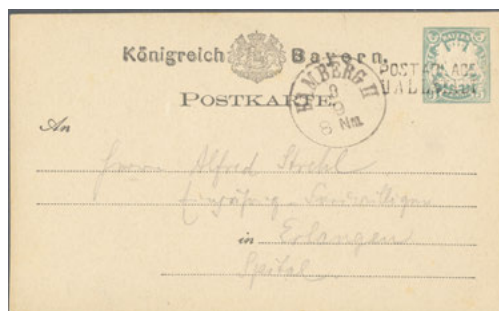 Königreich Bayern.
POSTABLAGE
BAMBERG II
9
8 Nm.
POSTKARTE.
An
Herrn Alfred Strehl
Einjährig-Freiwilligen
in Erlangen
Spital